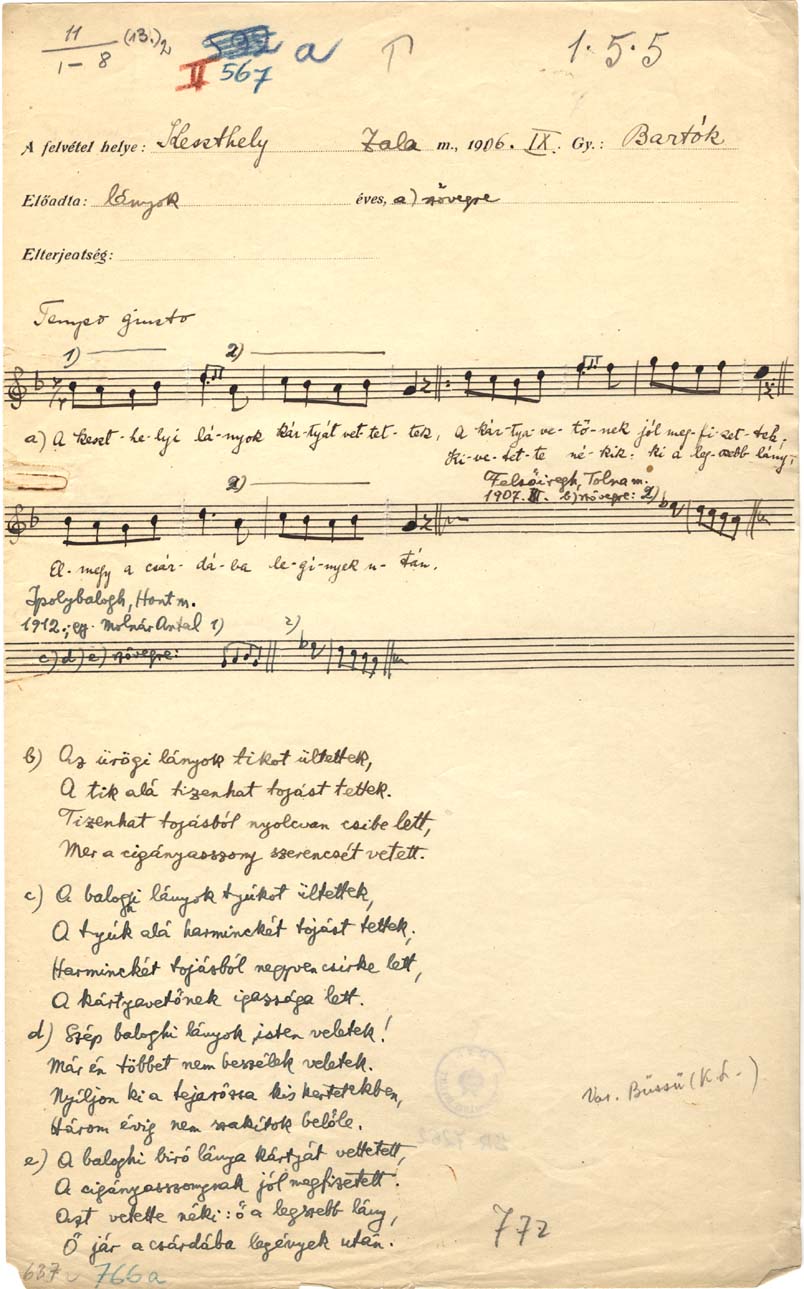 11 (13.) 2
1–8
II 567 a T 1.5.5
A felvétel helye: Keszthely Zala m., 1906. IX. Gy.: Bartók
Előadta: lányok éves, a) szövegre
Elterjeatség:
Tempo giusto
1) 2)
a) A keszt-he-lyi lá-nyok kár-tyát vet-tet-tek, A kár-tya ve-tő-nek jól meg-fi-zet-tek;
Ki-ve-tet-te né-kik: ki a leg-szebb lány,
Felsőiregh, Tolna m.
1907. b) szövegre: 2)
2)
El-megy a csár-dá-ba le-gi-nyek u-tán.
Ipolybalogh, Hont m.
1912.; gy. Molnár Antal 1) 2)
c) d) e) szövegre:
b) Az ürögi lányok tikot ültettek,
A tik alá tizenhat tojást tettek.
Tizenhat tojásból nyolcvan csibe lett,
Mer a cigányasszony szerencsét vetett.
c) A baloghi lányok tyúkot ültettek,
A tyúk alá harminckét tojást tettek,
Harminckét tojásból negyven csirke lett,
A kártyavetőnek igassága lett.
d) Szép baloghi lányok, isten veletek!
Már én többet nem beszélek veletek.
Nyíljon ki a tejarózsa kis kertetekben,
Három évig nem szakítok belőle.
e) A baloghi biró lánya kártyát vettetett,
A cigányasszonynak jól megfizetett.
Aszt vetette néki: ő a legszebb lány,
Ő jár a csárdába legények után.
Var. Büssü (K. L.)
772
637 766a